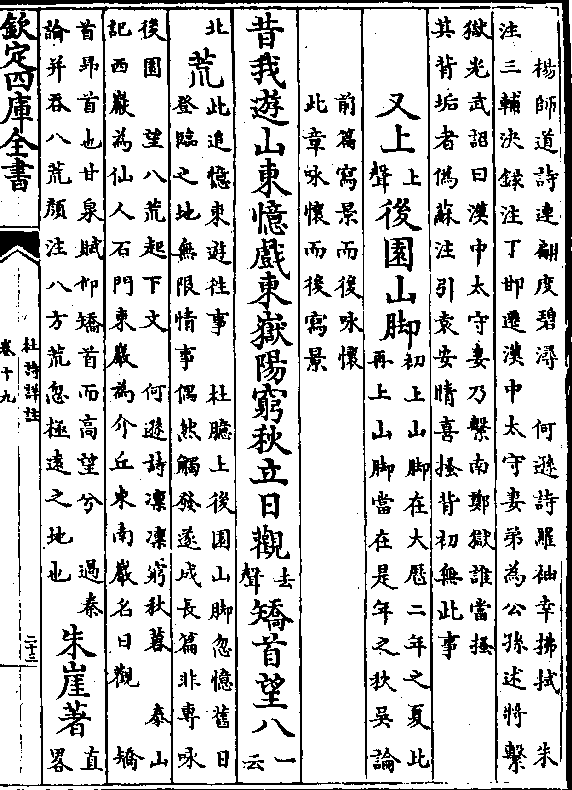 楊師道詩連翩度碧潯　何遜詩羅袖幸拂拭　朱
注三輔決録注丁邯遷漢中太守妻弟為公孫述將繫
獄光武詔曰漢中太守妻乃繫南鄭獄誰當搔
其背垢者偽蘇注引袁安晴喜搔背初無此事
又上上聲後園山脚初上山脚在大厯二年之夏此
再上山脚當在是年之秋吳論
前篇寫景而後咏懷
此章咏懷而後寫景
昔我遊山東憶戲東嶽陽窮秋立日觀去聲矯首望八一云
北荒此追憶東遊往事　杜臆上後園山脚忽憶舊日
登臨之地無限情事偶然觸發遂成長篇非專咏
後園　望八荒起下文　何遜詩凛凛窮秋暮　泰山
記西巖為仙人石門東巖為介丘東南巖名日觀　矯
首昻首也甘泉賦仰矯首而高望兮　過秦
論并吞八荒顔注八方荒忽極逺之地也
朱崖著直畧
欽定四庫全書
杜詩詳註
卷十九
二十三